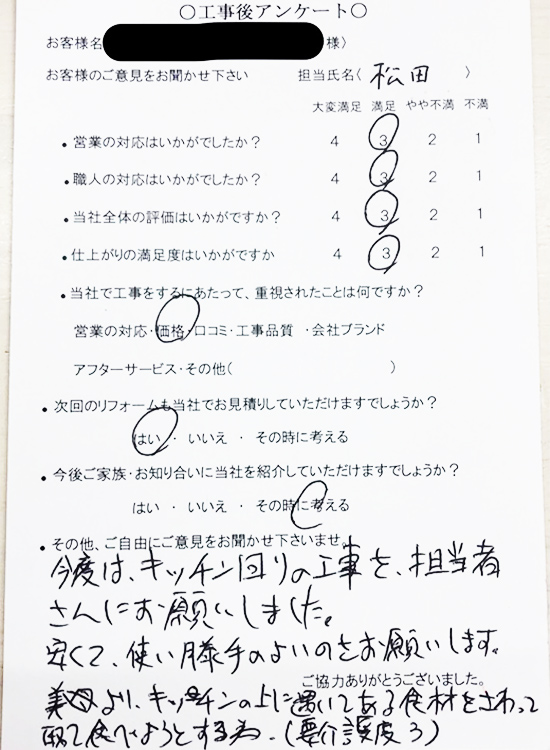 〇工事後アンケート〇
お客様名 様)
お客様のご意見をお聞かせ下さい 担当氏名( 松田 )
大変満足 満足 やや不満 不満
・営業の対応はいかがでしたか? 4 3 2 1
・職人の対応はいかがでしたか? 4 3 2 1
・当社全体の評価はいかがですか? 4 3 2 1
・仕上がりの満足度はいかがですか 4 3 2 1
・当社で工事をするにあたって、重視されたことは何ですか?
営業の対応・価格・口コミ・工事品質 ・会社ブランド
アフターサービス・その他( )
・次回のリフォームも当社でお見積りしていただけますでしょうか?
はい ・ いいえ ・ その時に考える
・今後ご家族・お知り合いに当社を紹介していただけますでしょうか?
はい ・ いいえ ・ その時に考える
・その他、ご自由にご意見をお聞かせ下さいませ。
今度は、キッチン回りの工事を、担当者
さんにお願いしました。
安くて、使い勝手のよいのをお願いします。
ご協力ありがとうございました。
より、キッチンの上に置いてある食材をさわって
取って食べようとする為。(要介護度3)